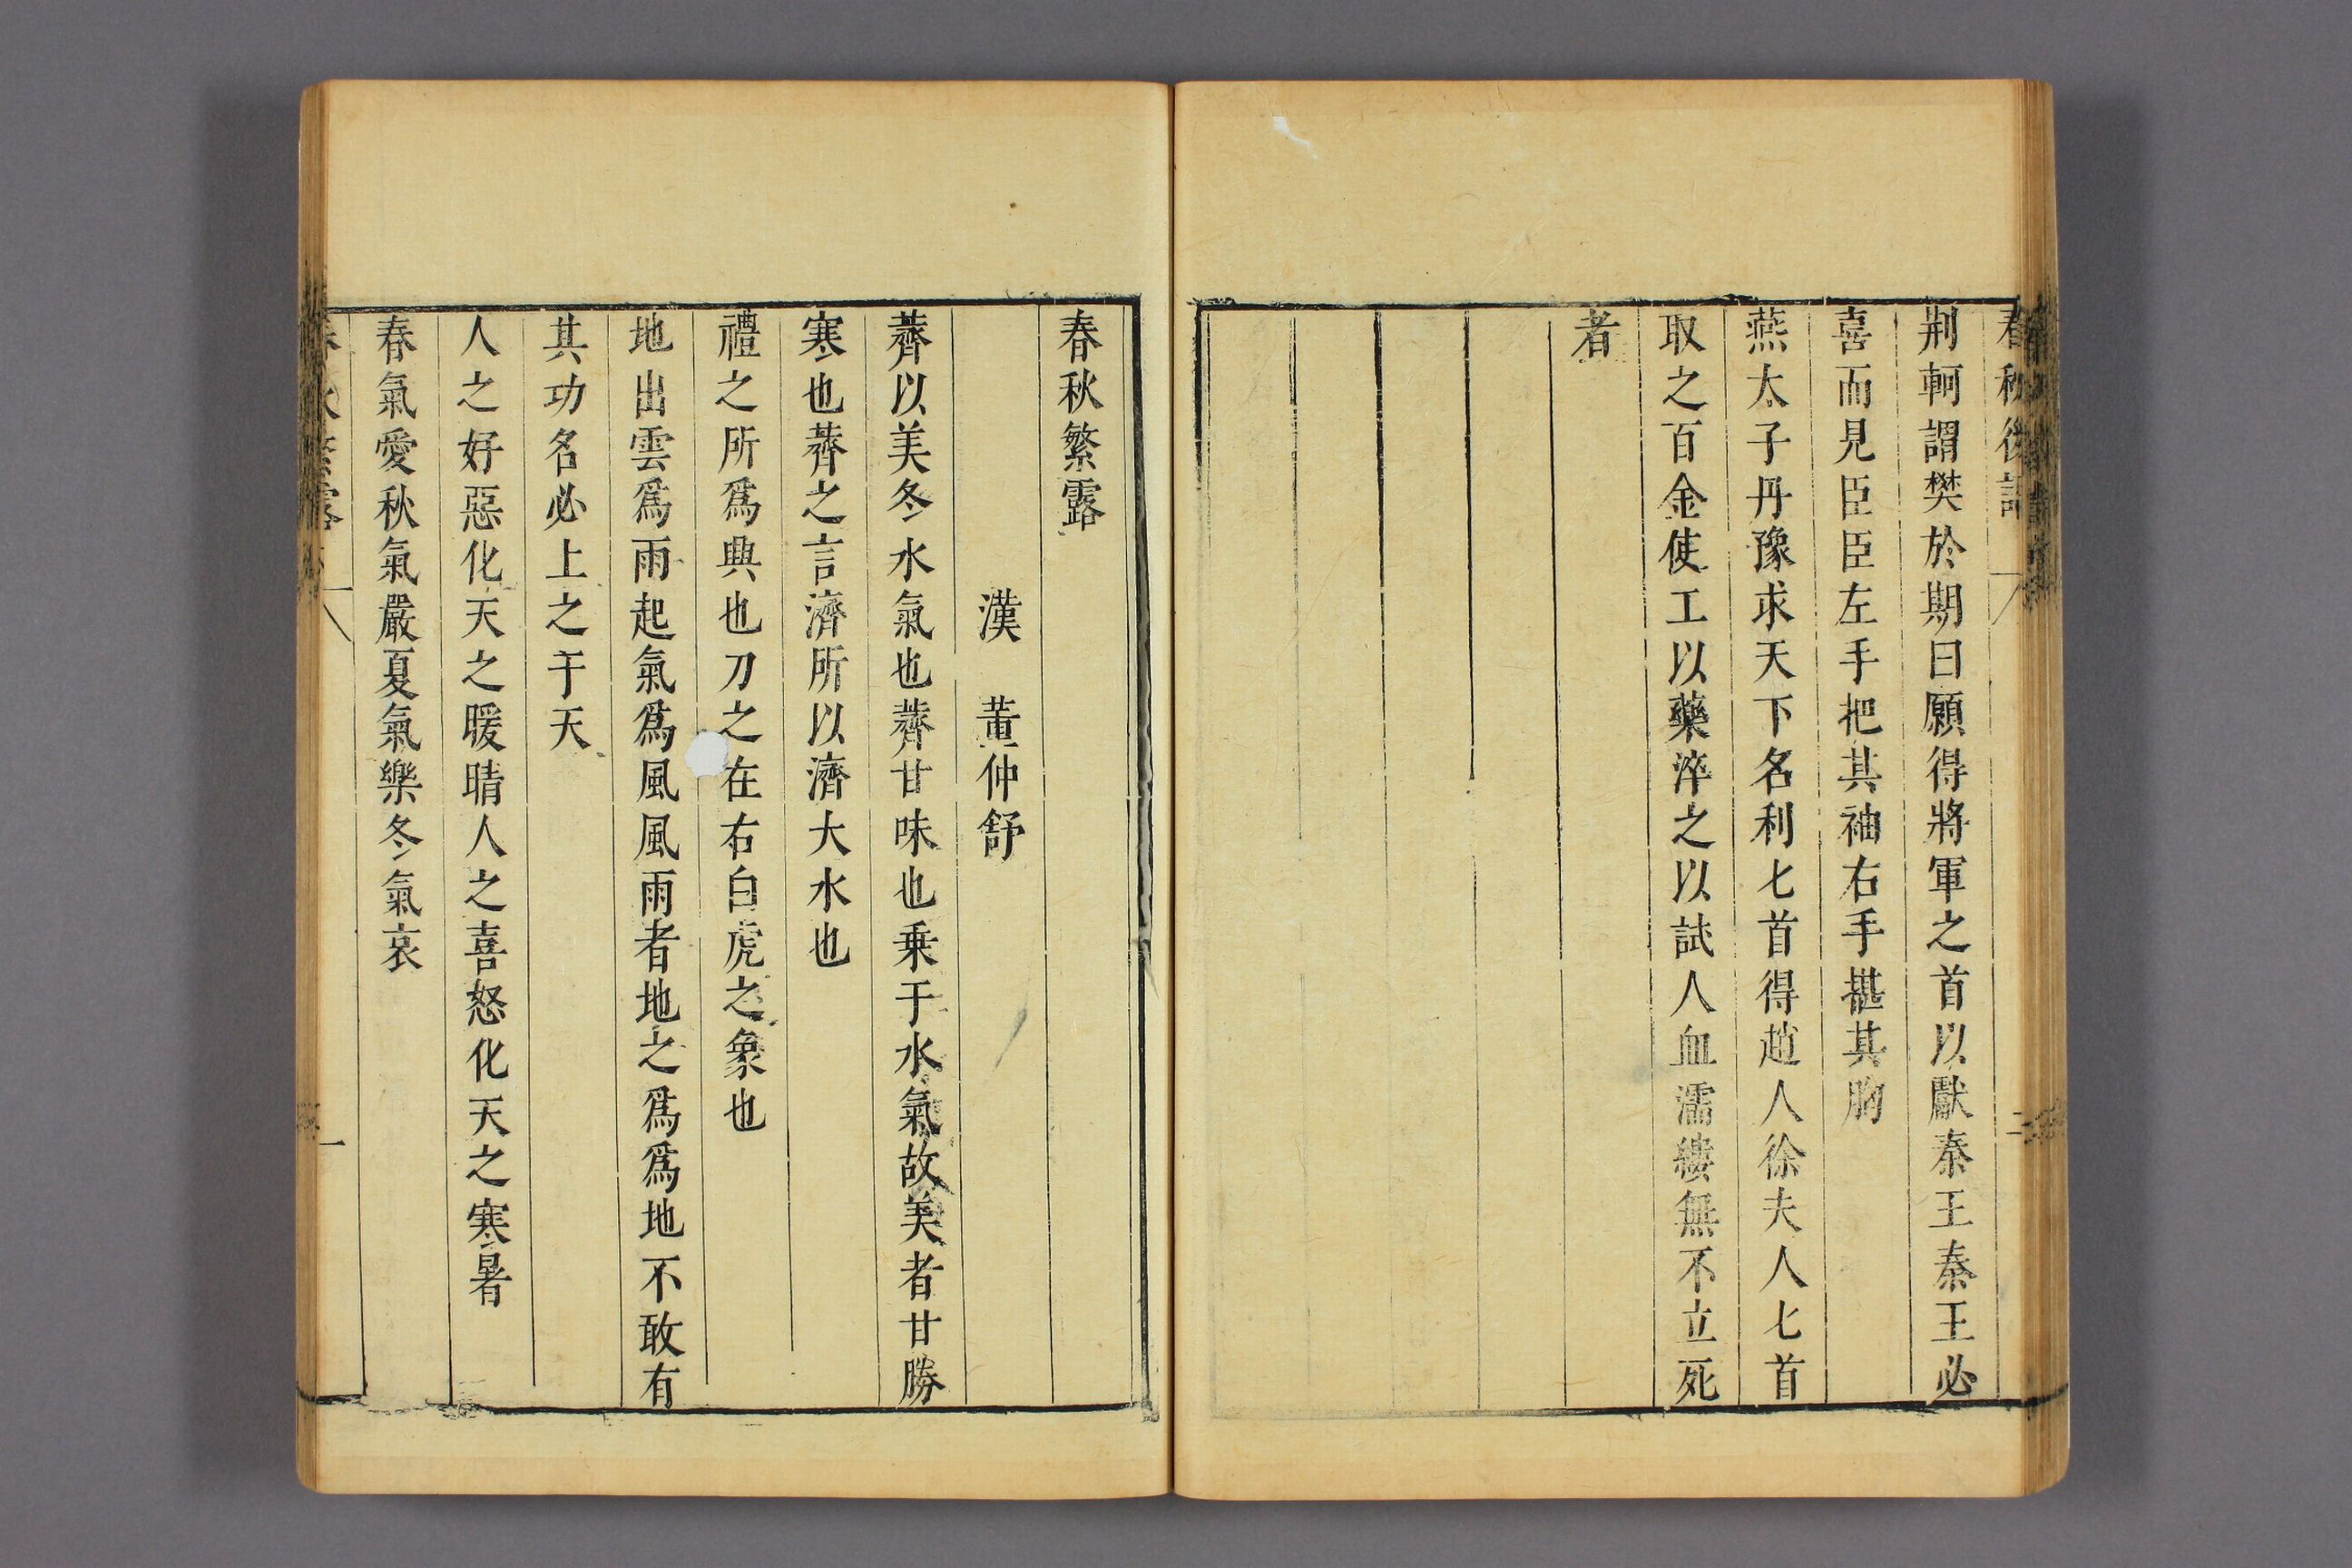 荆軻謂樊於期曰願得將軍之首以獻秦王秦王必
喜而見臣臣左手把其袖右手揕其胸
燕太子丹豫求天下名利七首得趙人徐夫人七首
取之百金使工以藥淬之以試人血濡縷無不立死
者
春秋繁露
漢 董仲舒
薺以美冬水氣也薺甘味也乗于水氣故美者甘勝
寒也薺之言濟所以濟大水也
禮之所爲興也刀之在右白虎之象也
地出雲爲雨起氣爲風風雨者地之爲爲地不敢有
其功名必上之于天
人之好惡化天之暖晴人之喜怒化天之寒暑
春氣愛秋氣嚴夏氣樂冬氣哀